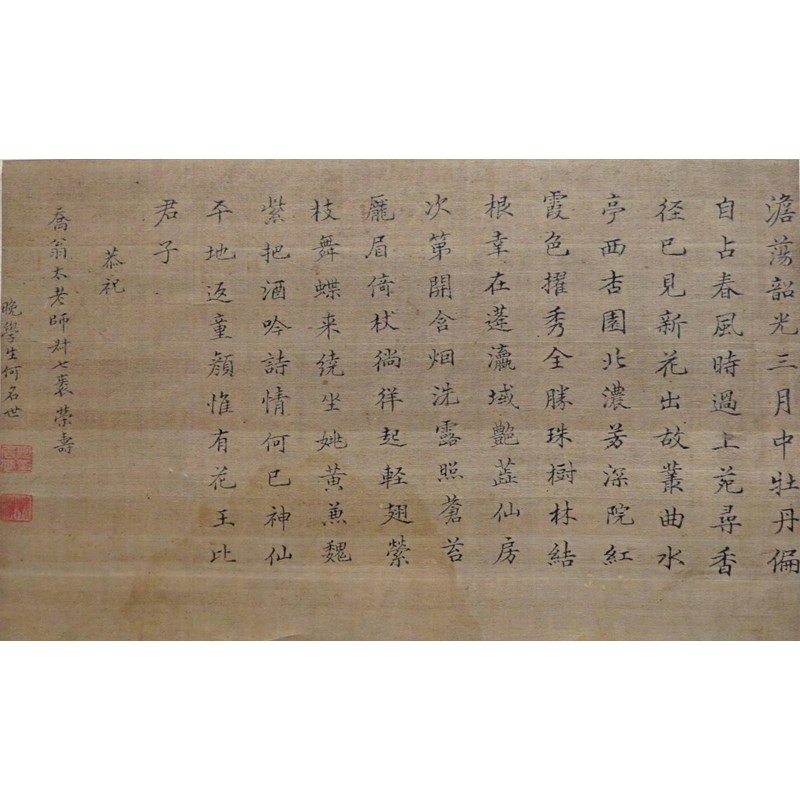 澹蕩韶光三月中牡丹偏
自占春風時過上苑尋香
径已見新花出故叢曲水
亭西杏園北濃芳深院紅
霞色擢秀全勝珠樹林結
根幸在蓬瀛域艶蕋仙房
次第開含烟洗露照蒼苔
厖眉倚杖徜徉起軽翅縈
枝舞蝶来繞坐姚黄兼魏
紫把酒吟詩情何已神仙
平地返童顔惟有花王比
君子
恭祝
喬翁太老師 七袠榮壽
晚學生何名世